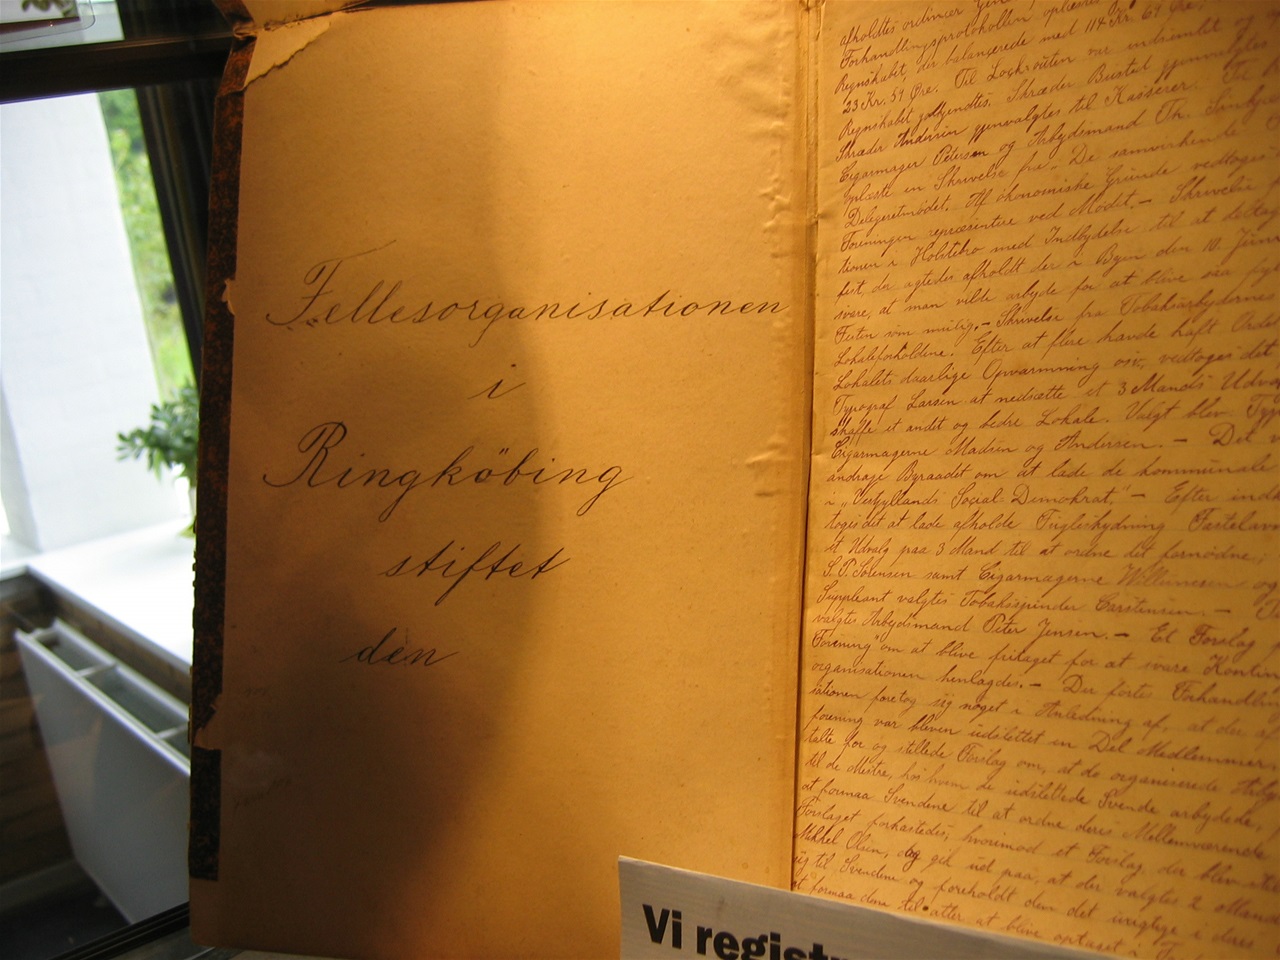 Fellesorganisationen
i
Ringköbing
stiftet
den
afholdtes ordinær
Forhandlingsprotokollen oplæstes
Regnskabet, der balancerede med 114 Kr. 67 Øre,
23 Kr. 51 Øre. Til Lockouten var indsamlet og
Regnskabet godkjendtes. Skræder Busted gjenvalgtes
Skræder Andersen gjenvalgtes til Kasserer.
Cigarmager Petersen og Arbejdsmand Th.
oplæste en Skrivelse fra De samvirkende
Delegeretmødet. Af økonomiske Grunde vedtoges
Foreningen repræsentere ved Mødet. — Skrivelse
tionen i Holstebro med Indbydelse til at deltage
fest, der agtedes afholdt der i Byen den 10. Juni
svare, at man vilde arbejde for at blive saa
Festen som mulig. — Skrivelse fra Tobaksarbejdernes
Lokaleforholdene. Efter at flere havde haft Ordet
Lokalets daarlige Opvarmning osv, vedtoges det
Typograf Larsen at nedsætte et 3 Mands Udvalg
skaffe et andet og bedre Lokale. Valgt blev
Cigarmagerne Madsen og Andersen. — Det
andrage Byraadet om at lade de kommunale
i „Vestjyllands Social-Demokrat." — Efter
toges det at lade afholde Fugleskydning Fastelavn
et Udvalg paa 3 Mand til at ordne det fornødne;
S. P. Sörensen samt Cigarmagerne Willumsen og
Suppleant valgtes Tobaksspinder Carstensen. —
valgtes Arbejdsmand Peter Jensen. — Et Forslag
Forening" om at blive fritaget for at svare
organisationen henlagdes. — Der førtes Forhandling
sationen foretog sig noget i Anledning af, at der af
forening var bleven udslettet en Del Medlemmer.
talte for og stillede Forslag om, at de organiserede
til de Mestre, hos hvem de udslettede Svende arbejdede,
at formaa Svendene til at ordne deres Mellemværende
Forslaget forkastedes; hvorimod et Forslag der blev
Mikkel Olsen, og gik ud paa, at der valgtes 2 Mand
sig til Svendene og foreholdt dem det urigtige i deres
at formaa dem til atter at blive optaget i
Vi registr